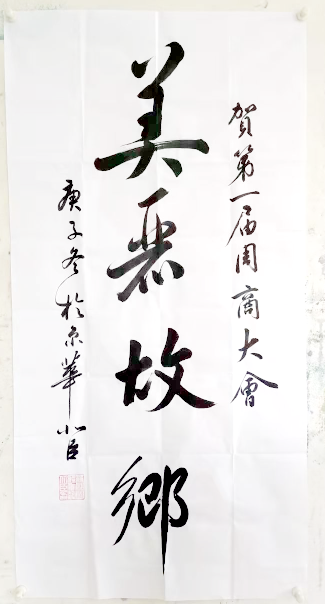 賀第一届周商大會
美麗故鄉
庚子冬於京華小臣